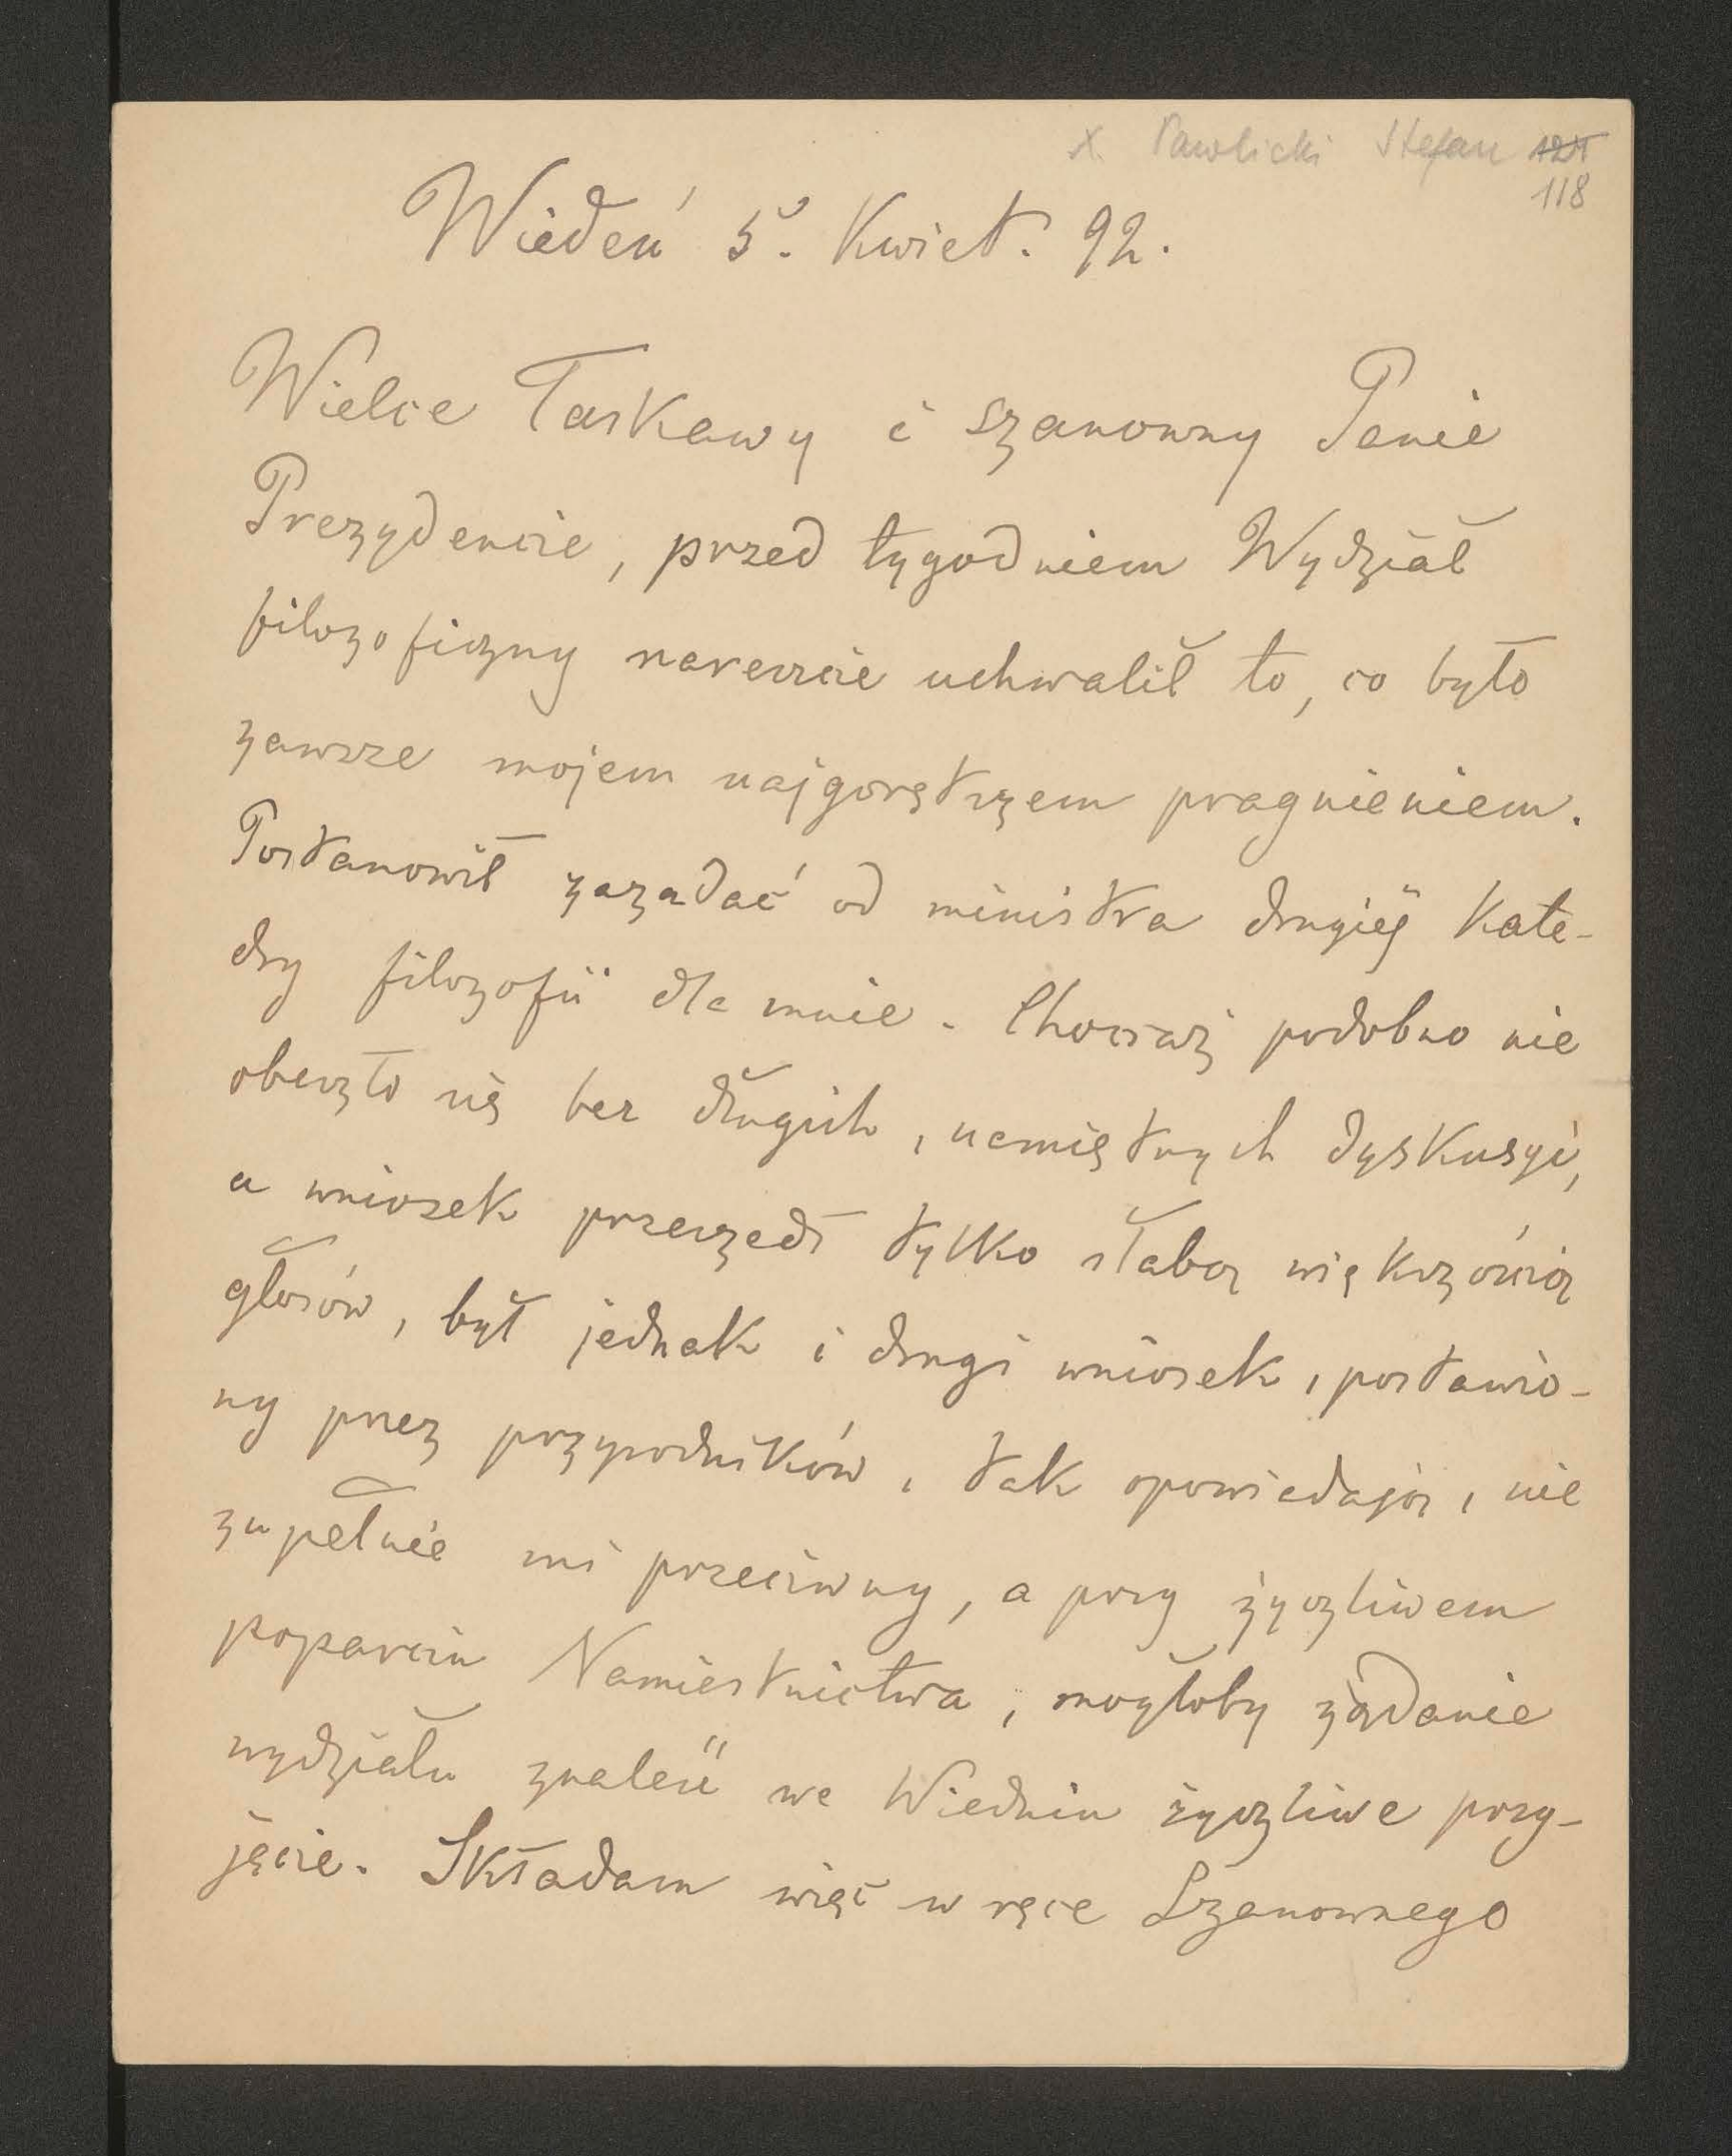 X. Pawlicki Stefan 121
118
Wiedeń 5. Kwiet. 92.
Wielce Łaskawy i szanowny Panie
Prezydencie, przed tygodniem Wydział
filozoficzny nareszcie uchwalił to, co było
zawsze mojem najgorętszem pragnieniem.
Postanowił zażądać od ministra drugiej kate-
dry filozofii dla mnie. Chociaż podobno nie
obeszło się bez długich, namiętnych dyskusyi,
a wniosek przeszedł tylko słabą większością
głosów, był jednak i drugi wniosek, postawio-
ny przez przyrodników, tak opowiadają, nie
zupełnie mi przeciwny, a przy życzliwem
poparciu Namiestnictwa, mogłoby żądanie
wydziału znaleźć we Wiedniu życzliwe przy-
jęcie. Składam więc w ręce Szanownego